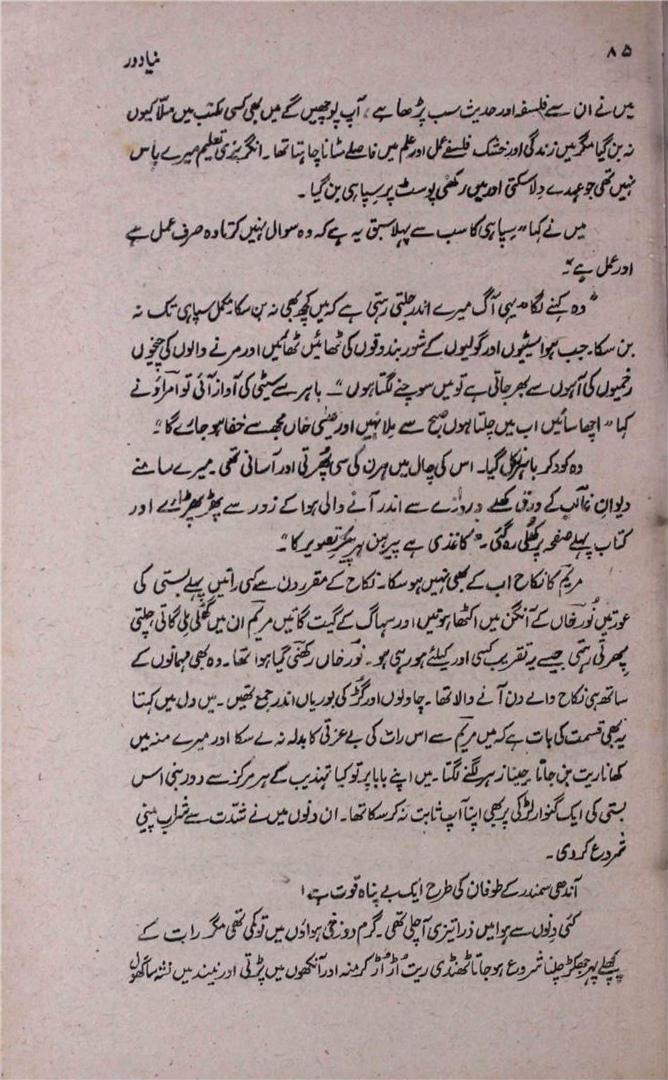 ۸۵
نیا دور
میں نے ان سے فلسفہ اور حدیث سب پڑھا ہے، آپ پوچھیں گے میں بھی کسی مکتب میں ملّا کیوں
نہ بن گیا مگر میں زندگی اور خشک فلسفے عمل اور علم میں فاصلے مٹانا چاہتا تھا۔ انگریزی تعلیم میرے پاس
نہیں تھی جو عہدے دلا سکتی اور میں رکھنی پوسٹ پر سپاہی بن گیا۔
میں نے کہا "سپاہی کا سب سے پہلا سبق یہ ہے کہ وہ سوال نہیں کرتا وہ صرف عمل ہے
اور عمل ہے"۔
"وہ کہنے لگا" یہی آگ میرے اندر جلتی رہتی ہے کہ میں کچھ بھی نہ بن سکا مکمل سپاہی تک نہ
بن سکا۔ جب ہوا سیٹیوں اور گولیوں کے شور بندوقوں کی ٹھائیں ٹھائیں اور مرنے والوں کی چیخوں
زخمیوں کی آہوں سے بھر جاتی ہے تو میں سوچنے لگتا ہوں"۔ باہر سے سیٹی کی آواز آئی تو امراؤ نے
کہا "اچھا سائیں اب میں چلتا ہوں صبح سے ملا نہیں اور عیسٰی خاں مجھ سے خفا ہو جائے گا"
وہ کود کر باہر نکل گیا۔ اس کی چال میں ہرن کی سی پھرتی اور آسانی تھی۔ میرے سامنے
دیوانِ غالب کے ورق کھلے دروازے سے اندر آنے والی ہوا کے زور سے پھڑپھڑائے اور
کتاب پہلے صفحہ پر کھلی رہ گئی۔ "کاغذی ہے پیرہن ہر پیکرِ تصویر کا"۔
مریم کا نکاح اب کے بھی نہیں ہو سکا۔ نکاح کے مقرر دن سے کئی راتیں پہلے بستی کی
عورتیں نور خاں کے آنگن میں اکٹھا ہوتیں اور سہاگ کے گیت گاتیں مریم ان میں گھلی ملی گاتی چلتی
پھرتی رہتی جیسے یہ تقریب کسی اور کیلئے ہو رہی ہو۔ نور خاں رکھنی گیا ہوا تھا۔ وہ بھی مہمانوں کے
ساتھ ہی نکاح والے دن آنے والا تھا۔ چاولوں اور گڑ کی بوریاں اندر جمع تھیں۔ میں دل میں کہتا
یہ بھی قسمت کی بات ہے کہ میں مریم سے اس رات کی بے عزتی کا بدلہ نہ لے سکا اور میرے منہ میں
کھانا ریت بن جاتا جینا زہر لگنے لگتا۔ میں اپنے بابا پر تو کیا تہذیب کے ہر مرکز سے دور بسی اس
بستی کی ایک گنوار لڑکی پر بھی اپنا آپ ثابت نہ کر سکا تھا۔ ان دنوں میں نے شدّت سے شراب پینی
شروع کر دی۔
آندھی سمندر کے طوفان کی طرح ایک بے پناہ قوت ہے!
کئی دنوں سے ہوا میں ذرا تیزی آ چلی تھی۔ گرم دوزخی ہواؤں میں تو کمی تھی مگر رات کے
پچھلے پہر جھکڑ چلنا شروع ہو جاتا ٹھنڈی ریت اُڑ اُڑ کر منہ اور آنکھوں میں پڑتی اور نیند میں نشہ سا گھول